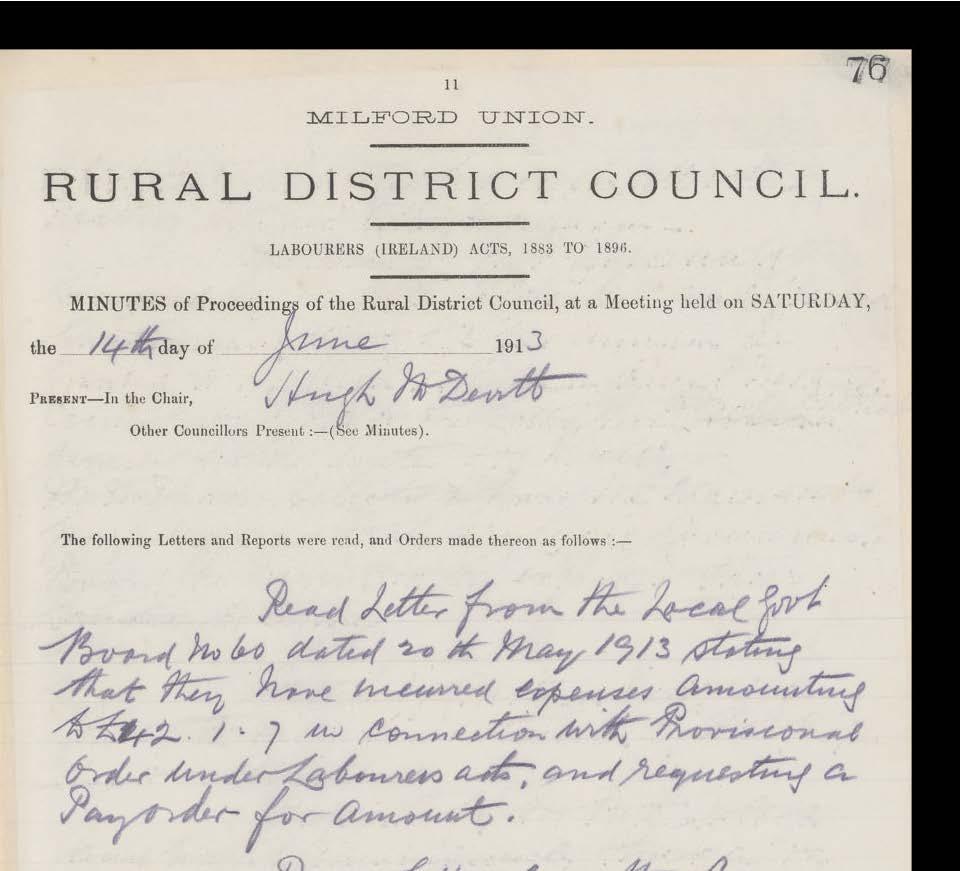 76
11
MILFORD UNION.
RURAL DISTRICT COUNCIL.
LABOURERS (IRELAND) ACTS, 1883 TO 1896.
MINUTES of Proceedings of the Rural District Council, at a Meeting held on SATURDAY,
the 14th day of June 1913
PRESENT—In the Chair, Hugh McDevitt
Other Councillors Present :—(See Minutes).
The following Letters and Reports were read, and Orders made thereon as follows :—
Read Letter from the Local Govt
Board No 60 dated 20th May 1913 stating
that they have incurred expenses amounting
to £42. 1. 7 in connection with Provisional
Order under Labourers acts, and requesting a
Payorder for amount.